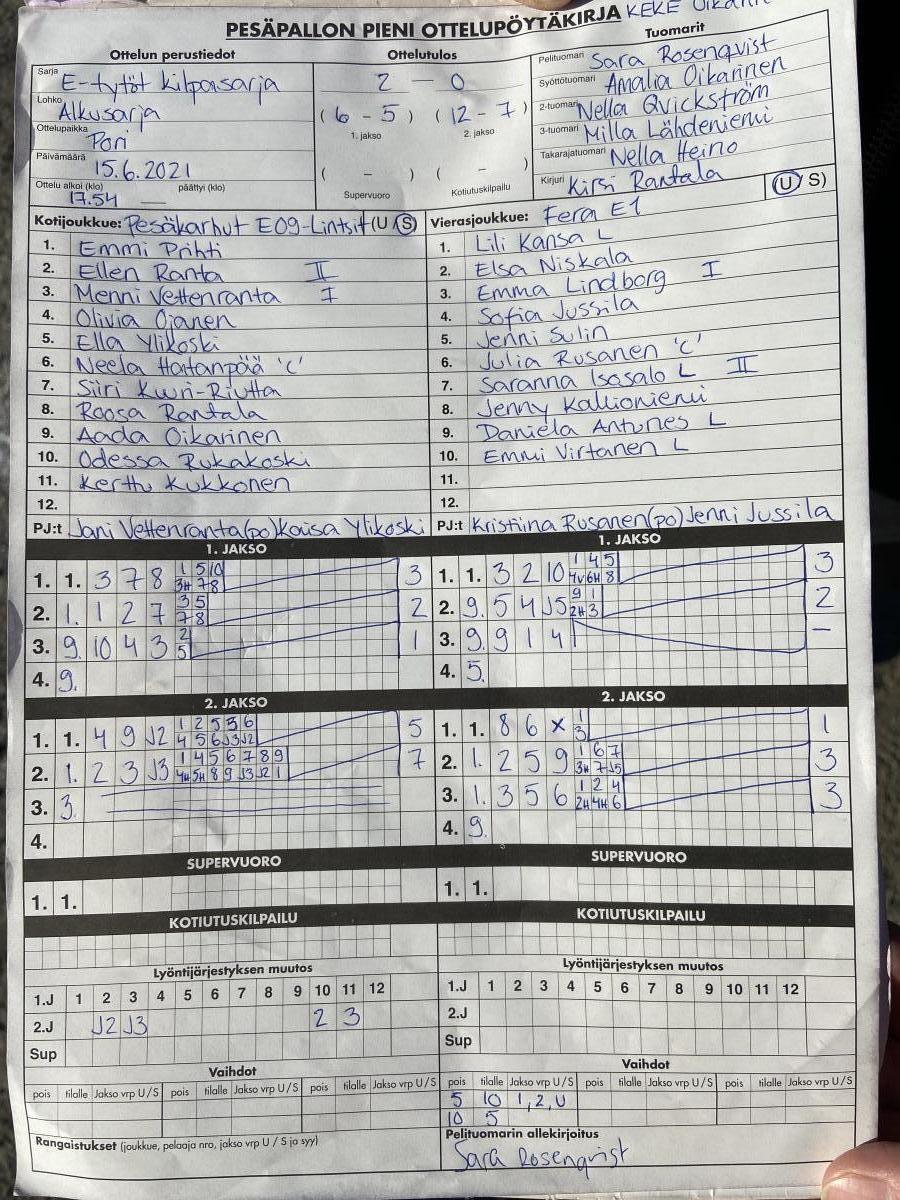 PESÄPALLON PIENI OTTELUPÖYTÄKIRJA KEKE
Ottelun perustiedot
Sarja E-tytöt kilpasarja
Lohko Alkusarja
Ottelupaikka Pori
Päivämäärä 15.6.2021
Ottelu alkoi (klo) 17.54 päättyi (klo)
Ottelutulos
2 — 0
(6 - 5) (12 - 7)
1. jakso 2. jakso
( - ) ( - )
Supervuoro Kotiutuskilpailu
Tuomarit
Pelituomari Sara Rosenqvist
Syöttötuomari Amalia Oikarinen
2-tuomari Nella Quickström
3-tuomari Milla Lähdeniemi
Takarajatuomari Nella Heino
Kirjuri Kirsi Rantala
Kotijoukkue: Pesäkarhut E09-Lintsit (U/S)
1. Emmi Prihti
2. Ellen Ranta II
3. Menni Vettenranta I
4. Olivia Ojanen
5. Ella Ylikoski
6. Neela Haitanpää 'c'
7. Siiri Kuuri-Riutta
8. Roosa Rantala
9. Aada Oikarinen
10. Odessa Rukakoski
11. Kerttu Kukkonen
12.
PJ:t Jani Vettenranta(po) Kaisa Ylikoski
Vierasjoukkue: Fera E1 (U/S)
1. Lili Kansa L
2. Elsa Niskala
3. Emma Lindborg I
4. Sofia Jussila
5. Jenni Sulin
6. Julia Rusanen 'c'
7. Saranna Isosalo L II
8. Jenny Kallioniemi
9. Daniela Antunes L
10. Emmi Virtanen L
11.
12.
PJ:t Kristiina Rusanen(po) Jenni Jussila
1. JAKSO
1. 1. 3 7 8 1 5 10 3
3H 7 8
2. 1. 1 2 7 3 5 2
7 8
3. 9. 10 4 3 2 1
5
4. 9.
1. JAKSO
1. 1. 3 2 10 1 4 5 3
4V 6H 8
2. 9. 5 4 J5 9 1 2
2H 3
3. 9. 9 1 4 —
4. 5.
2. JAKSO
1. 1. 4 9 J2 1 2 5 3 6 5
4 5 6 J3 J2
2. 1. 2 3 J3 1 4 5 6 7 8 9 7
4H 5H 8 9 J3 J2 1
3. 3.
4.
2. JAKSO
1. 1. 8 6 x 1 1
3
2. 1. 2 5 9 1 6 7 3
3H 7 J5
3. 1. 3 5 6 1 2 4 3
2H 4H 6
4. 9.
SUPERVUORO
1. 1.
SUPERVUORO
1. 1.
KOTIUTUSKILPAILU
KOTIUTUSKILPAILU
Lyöntijärjestyksen muutos
1.J 1 2 3 4 5 6 7 8 9 10 11 12
2.J J2 J3 2 3
Sup
Lyöntijärjestyksen muutos
1.J 1 2 3 4 5 6 7 8 9 10 11 12
2.J
Sup
Vaihdot
pois tilalle Jakso vrp U/S pois tilalle Jakso vrp U/S pois tilalle Jakso vrp U/S
Vaihdot
pois tilalle Jakso vrp U/S pois tilalle Jakso vrp U/S pois tilalle Jakso vrp U/S
5 10 1,2,U
10 5
Rangaistukset (joukkue, pelaaja nro, jakso vrp U / S ja syy)
Pelituomarin allekirjoitus
Sara Rosenqvist